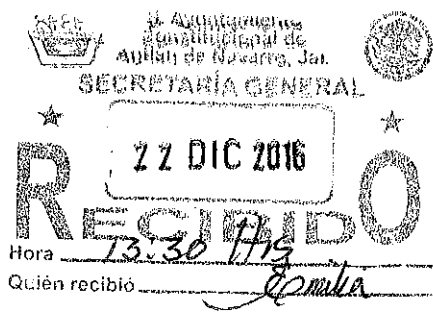 H. Ayuntamiento
Constitucional de
Autlán de Navarro, Jal.
SECRETARÍA GENERAL
22 DIC 2016
RECIBIDO
Hora 13:30 Hrs
Quién recibió Emilia